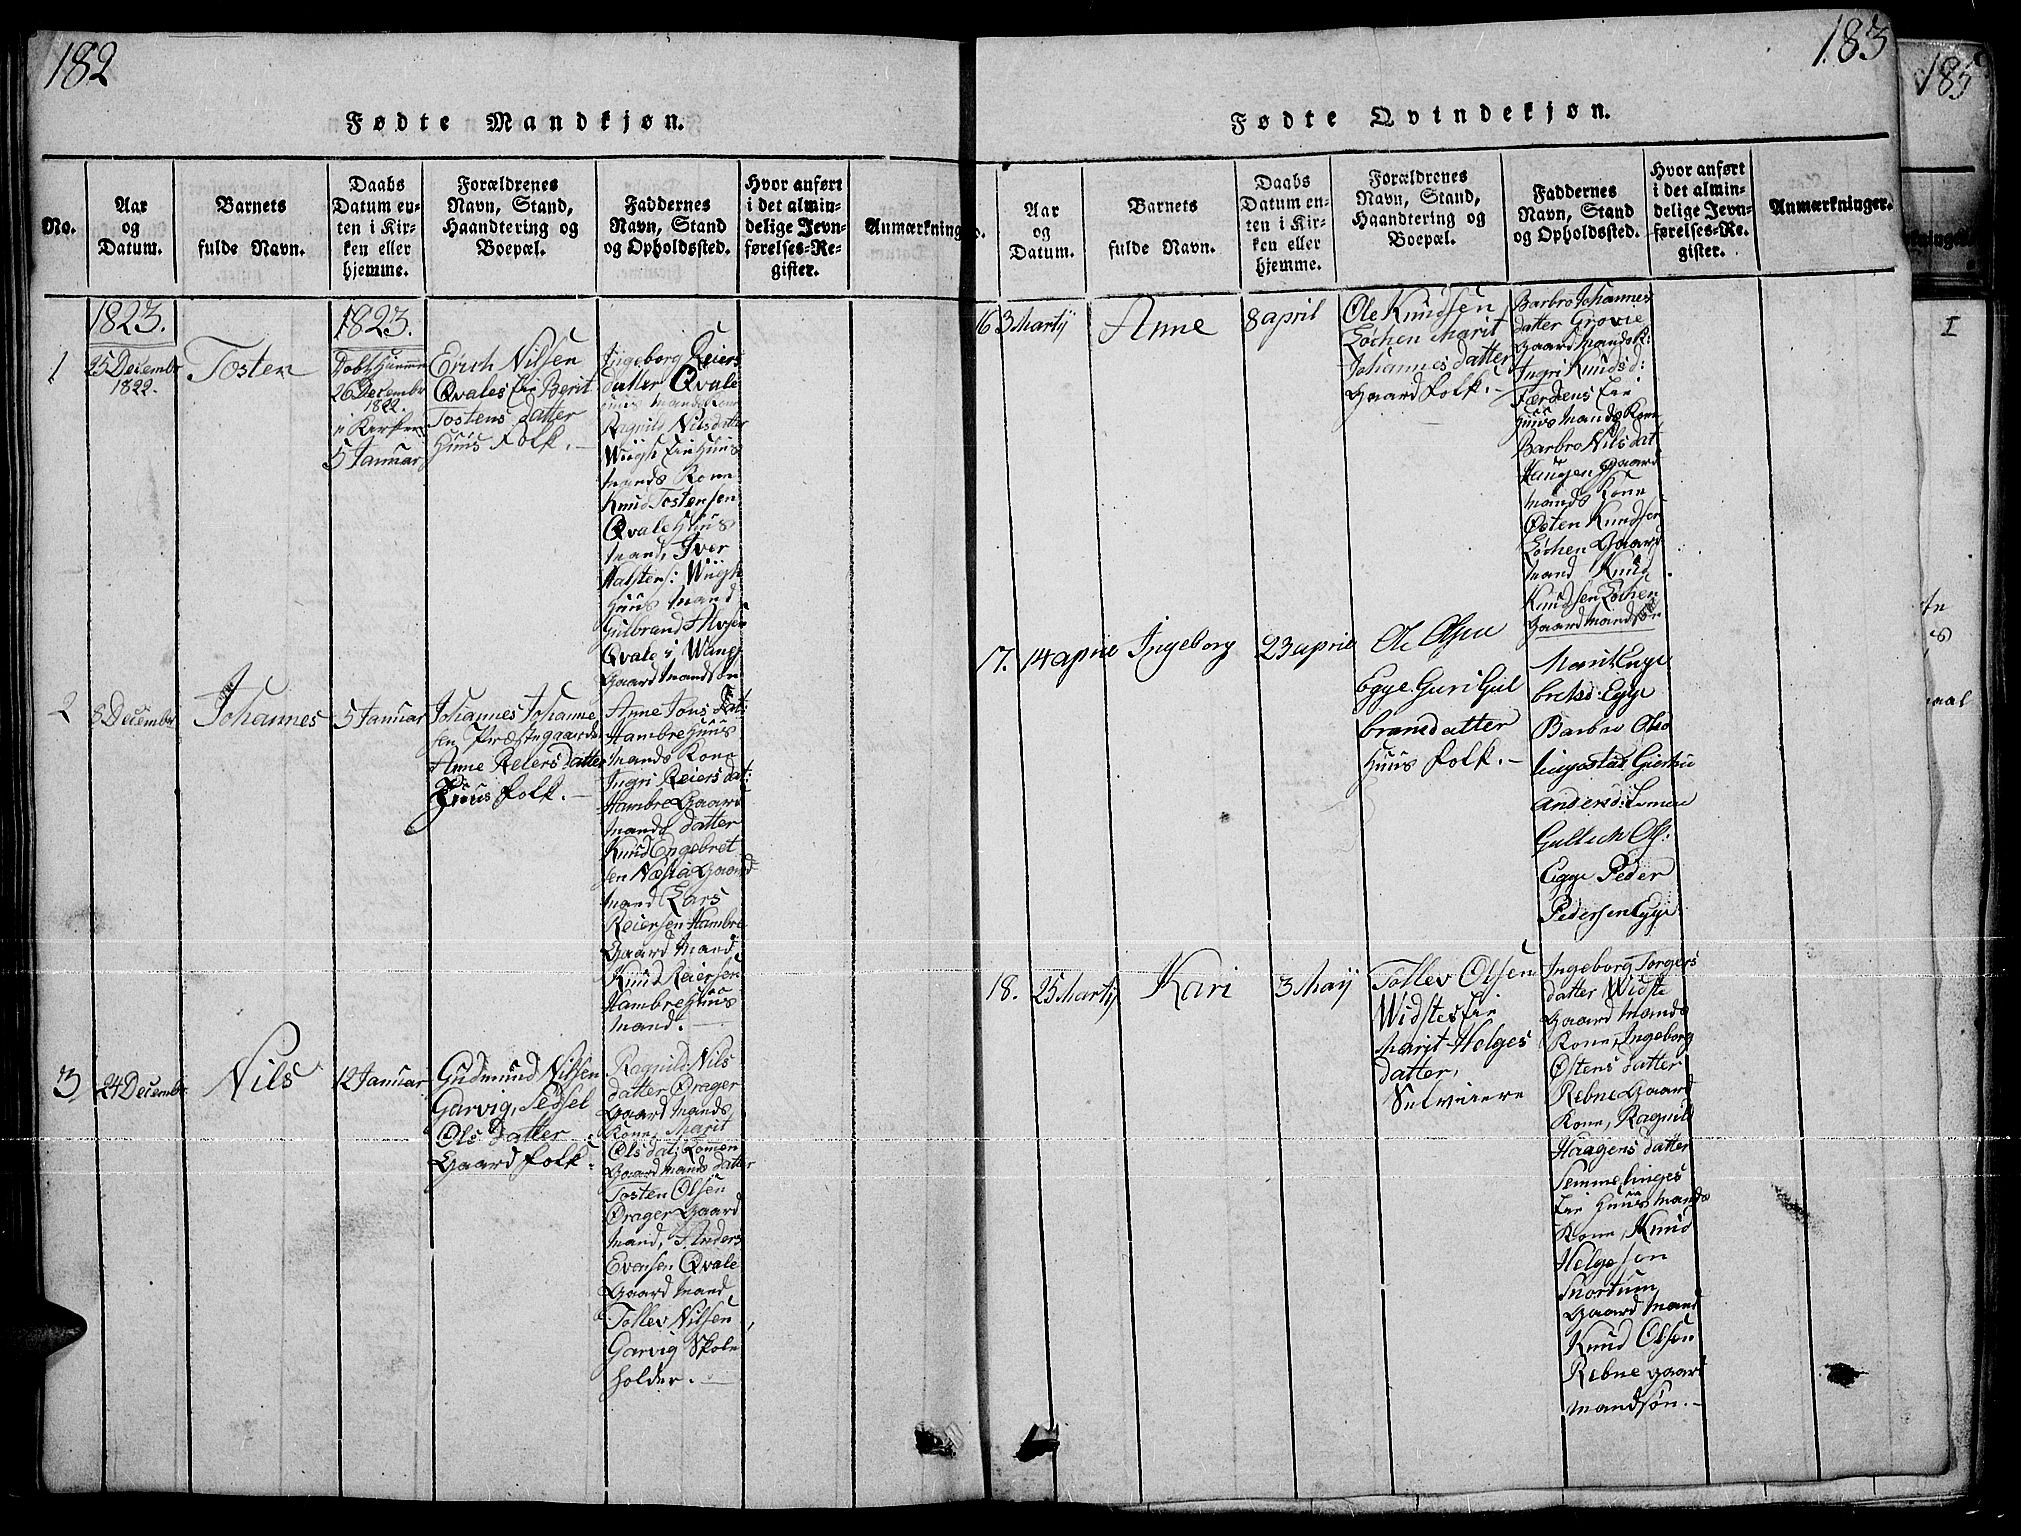 182
Fødte Mandkjøn.
No.
Aar
og
Datum.
Barnets
fulde Navn.
Daabs
Datum en-
ten i Kir-
ken eller
hjemme.
Forældrenes
Navn, Stand,
Haandtering og
Boepæl.
Faddernes
Navn, Stand
og Opholdssted.
Hvor anført
i det almin-
delige Jevn-
førelses-Re-
gister.
Anmærkning
1823.
1823.
1
25 Decembr
1822.
Tosten
26 Decembr
1822.
i Kirken
5 Januar
Erich Nilsen
Qvales Eie Berit
Tostens datter
Huus Folk.
Ingeborg Reiers
datter Qvale
Huus Mands Kone
Ragnild Nilsdatter
Wiigs Eie Huus
Mands Kone
Knud Tostensen
Qvale Huus
Mand, Iver
Halstens: Wiigs
Huus Mand
Gulbrand
Qvales
Gaard Mandsøn
2
8 December
Johannes
5 Januar
Johannes Johanne
sen Præstegaards
Anne Reiers datter
Huus folk.
Anne Jons dat:
Hambre Huus
Mands Kone
Ingri Reiers dat:
Hambre Gaard
Mands datter
Knud Engebret
sen Næsia Gaard
Mand Lars
Reiersen Hambre
Gaard Mand
Knud Reiersen
Hambre Huus
Mand.
3
24 Decembr
Nils
12 Januar
Gudmund Nilsen
Garvig, Sidsel
Ols datter
Gaard folk.
Ragnild Nils
datter Drager
Gaard Mands
Kone, Marit
Ols dat: Lomen
Gaard Mands datter
Tosten Olsen
Drager Gaard
Mand, Anders
Evensen Qvale
Gaard Mand
Tollev Nilsen
Garvig Skole
holder.
183
Fødte Qvindekjøn.
Aar
og
Datum.
Barnets
fulde Navn.
Daabs
Datum en-
ten i Kir-
ken eller
hjemme.
Forældrenes
Navn, Stand,
Haandtering og
Boepæl.
Faddernes
Navn, Stand
og Opholdssted.
Hvor anført
i det almin-
delige Jevn-
førelses-Re-
gister.
Anmærkninger.
16
3 Martij
Anne
8 april
Ole Knudsen
Løchen Marit
Johannes datter
Gaard folk.
Barbro Johannes
datter Grovie
Gaard Mands K:
Ingri Knuds d:
Færdens Eie
Huus Mands Kone
Barbro Nils dat
Haugen Gaard
Mands Kone
Østen Knudsen
Løchen Gaard
Mand Knud
Knudsen Løchen
Gaard Mandsøn
17.
14 aprie
Ingeborg
23 aprie
Ole Olsen
Egge Guri Gul
bransdatter
Huus folk.
Marit Enge
bretsd: Egge
Barbro Olsd
Andersd: Lomen
Gullich Ols:
Egge Peder
Pedersen Egge.
18.
25 Martij
Kari
3 Maij
Tollev Olsen
Widstes Eie
Marit Helges
datter,
Ingeborg Torgers
datter Widste
Gaard Mands
Kone, Ingeborg
Østens datter
Rebne Gaard
Kone, Ragnild
Haagens datter
Semmelinges
Eie Huus Mands
Kone, Knud
Helgesen
Snortum
Gaard Mand
Knud Olsen
Rebne Gaard
Mandsøn.
185
I